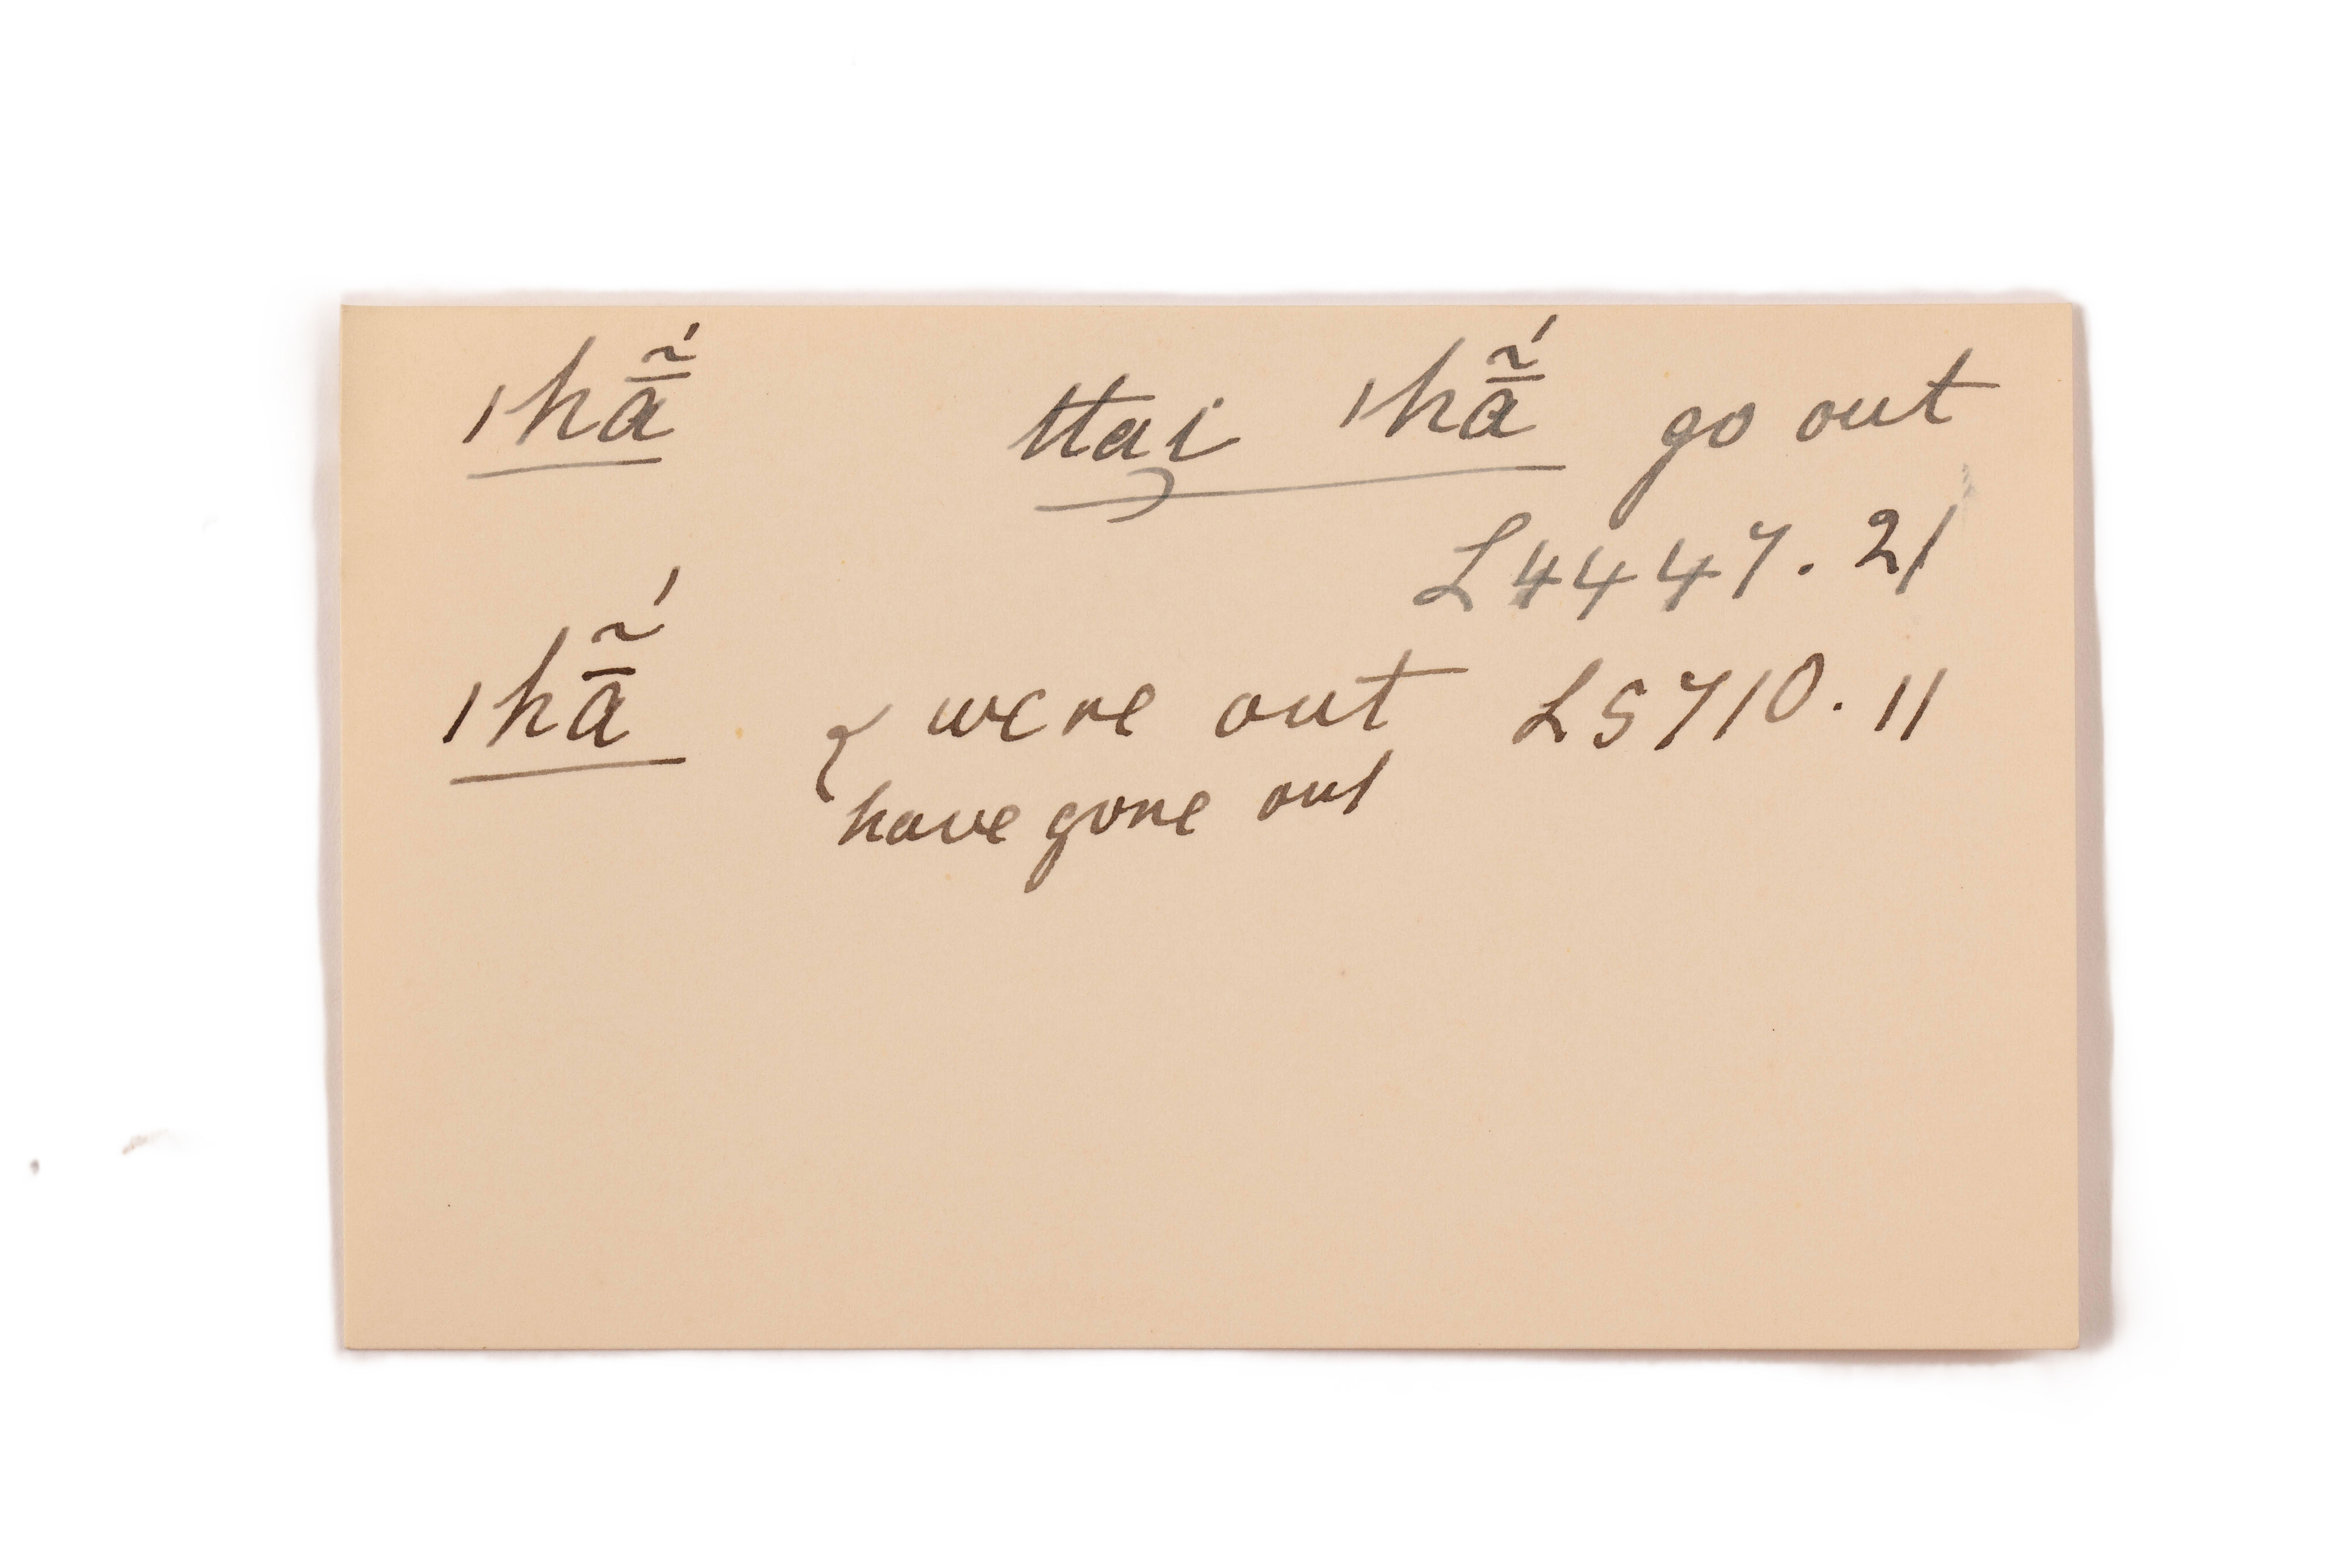 ıhā̰́ ttai ıhā̰́ go out
L4447.21
ıhā̰́ { were out L5710.11
have gone out